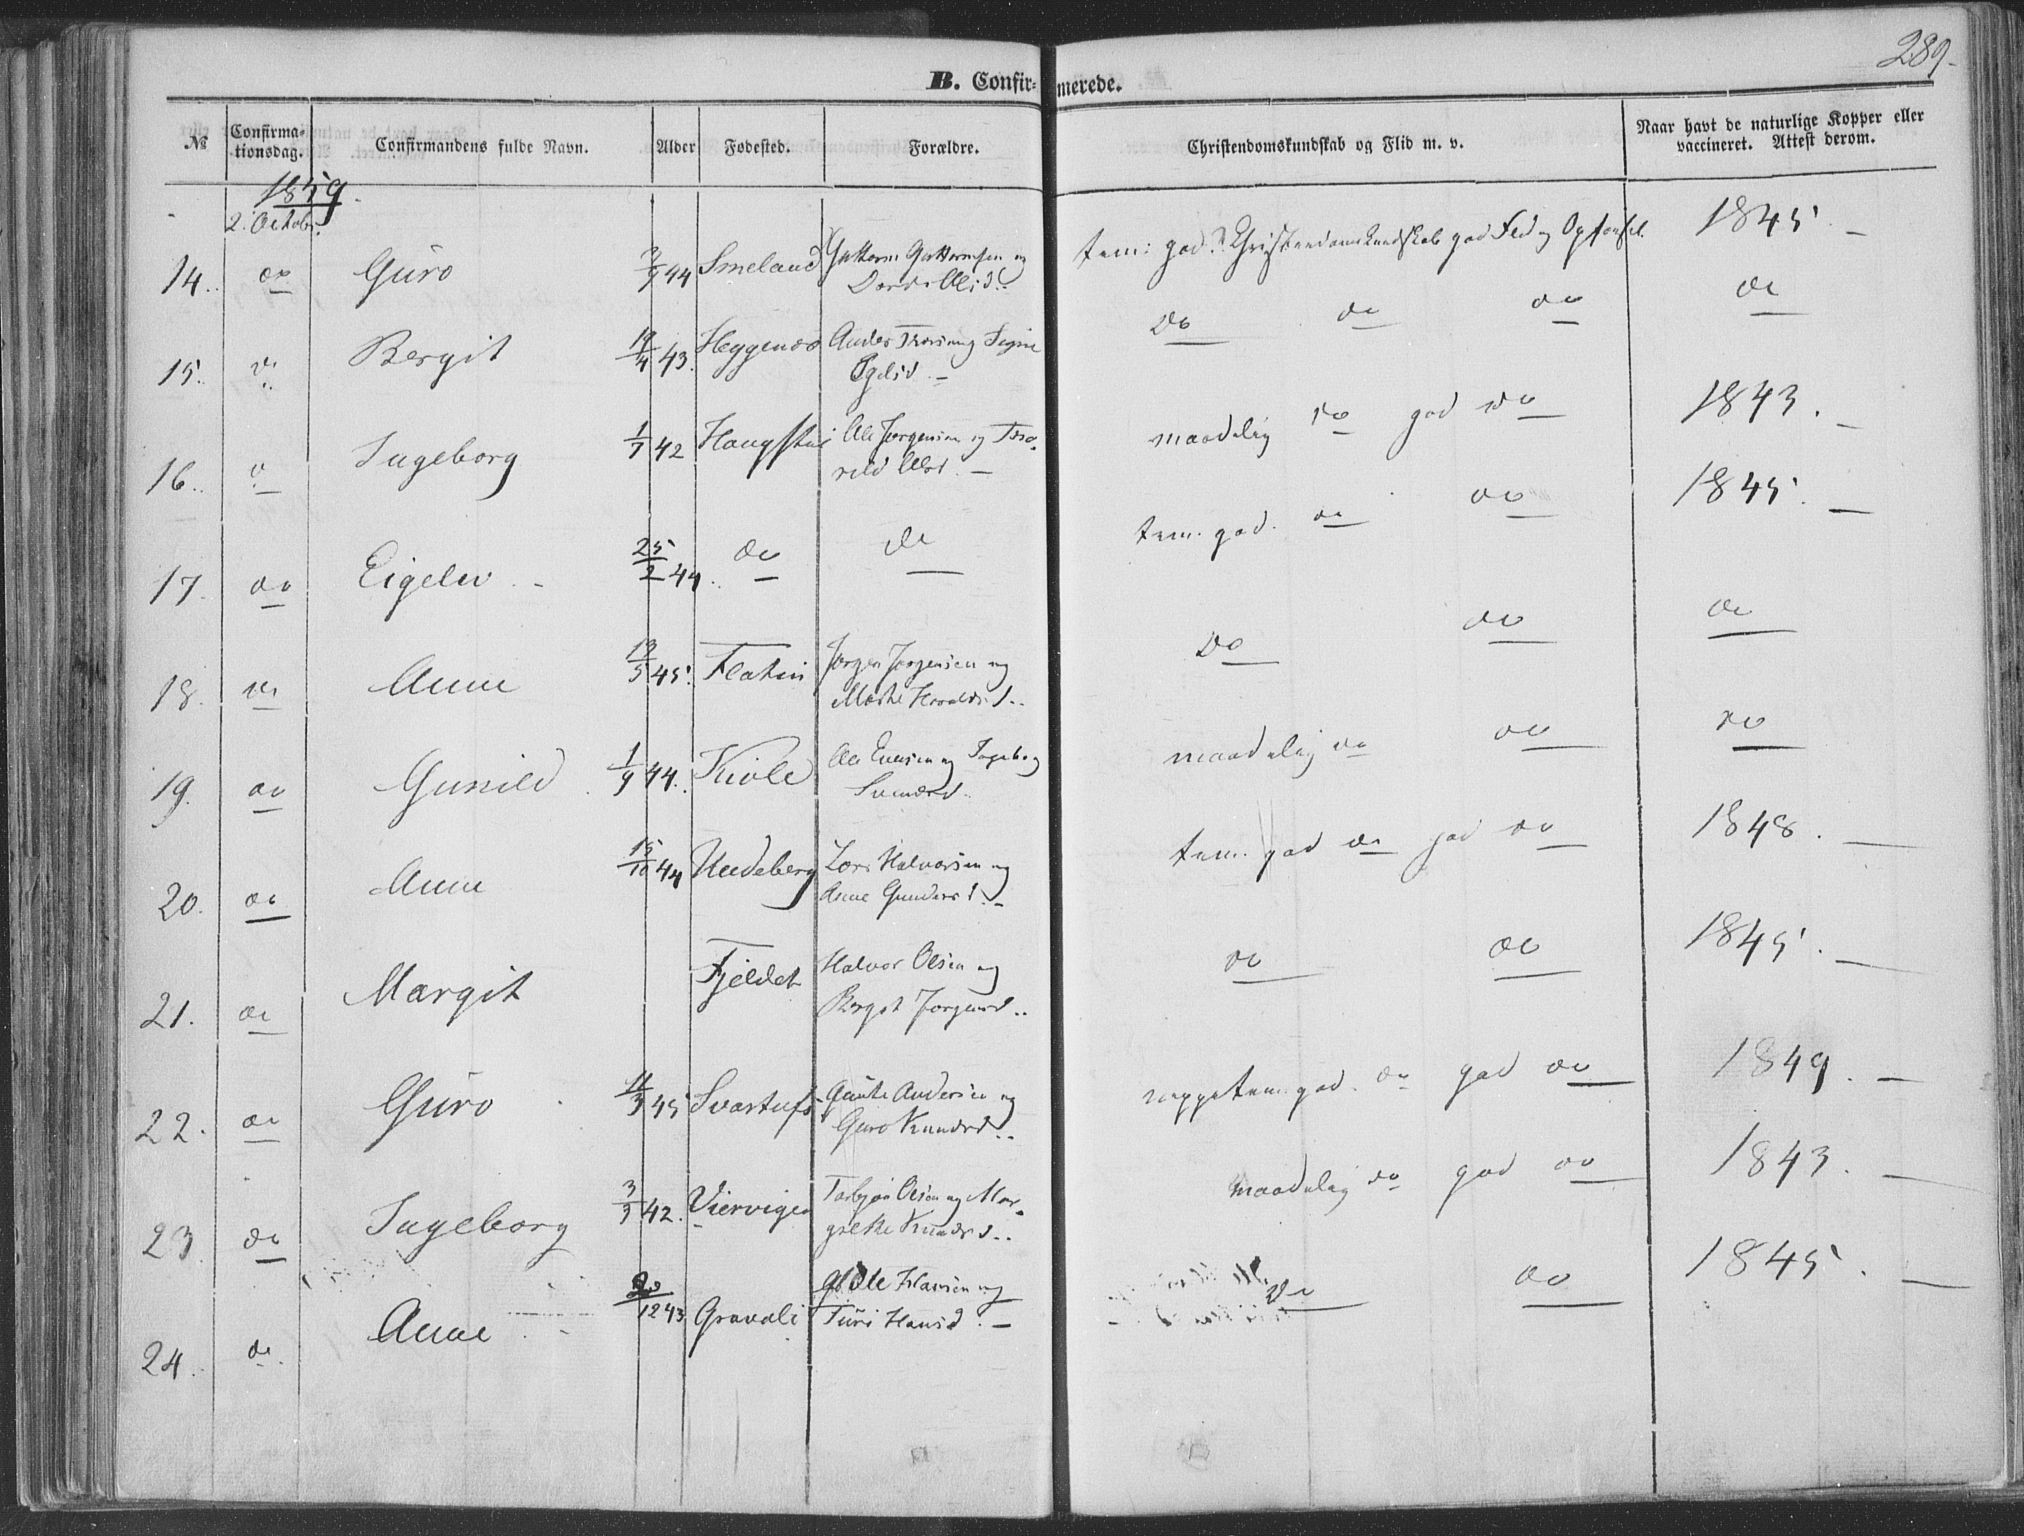 289.
B. Confir- merede.
№ Confirma- tionsdag. Confirmandens fulde Navn. Alder Fødested. Forældre. Christendomskundskab og Flid m. v. Naar havt de naturlige Kopper eller vaccineret. Attest derom.
1859.
2. Octobr.
14. do Guro 2/9 44 Smeland Guttorm Guttormsen og tem: god Christendomskundskab god Flid og Opførsel. 1845. —
15. do Bergit 19/4 43. Heggenes Anders og Signe do do do do
16. do Ingeborg 1/7 42 Ole Jørgensen og maadelig do god do 1843. —
17. do Eigelev 25/2 44. do do tem. god. do do 1845. —
18. do Anne 13/5 45. Flatin Jørgen Jørgensen og do do do
19. do Gunild 1/9 44. Kivle Ole Evensen og Ingeborg maadelig do do do
20. do Anne 15/10 44 Hudeberg Halvorsen og tem. god do god do 1848. —
Anne Gundersd. —
21. do Margit Fjeldet Halvor Olsen og do do 1845. —
Bergit Jørgensd..
22. do Guro 4/3 45 Svartufs Gunte Andersen og neppe tem. god. do god do 1849. —
Guro Knudsd..
23. do Ingeborg 3/3 42. Torbjøn Olsen og Mar- maadelig do god do 1843. —
grethe Knudsd..
24. do. Anne 20/12 43 Gravali Ole Hansen og do do 1845. —
Turi Hansd. —